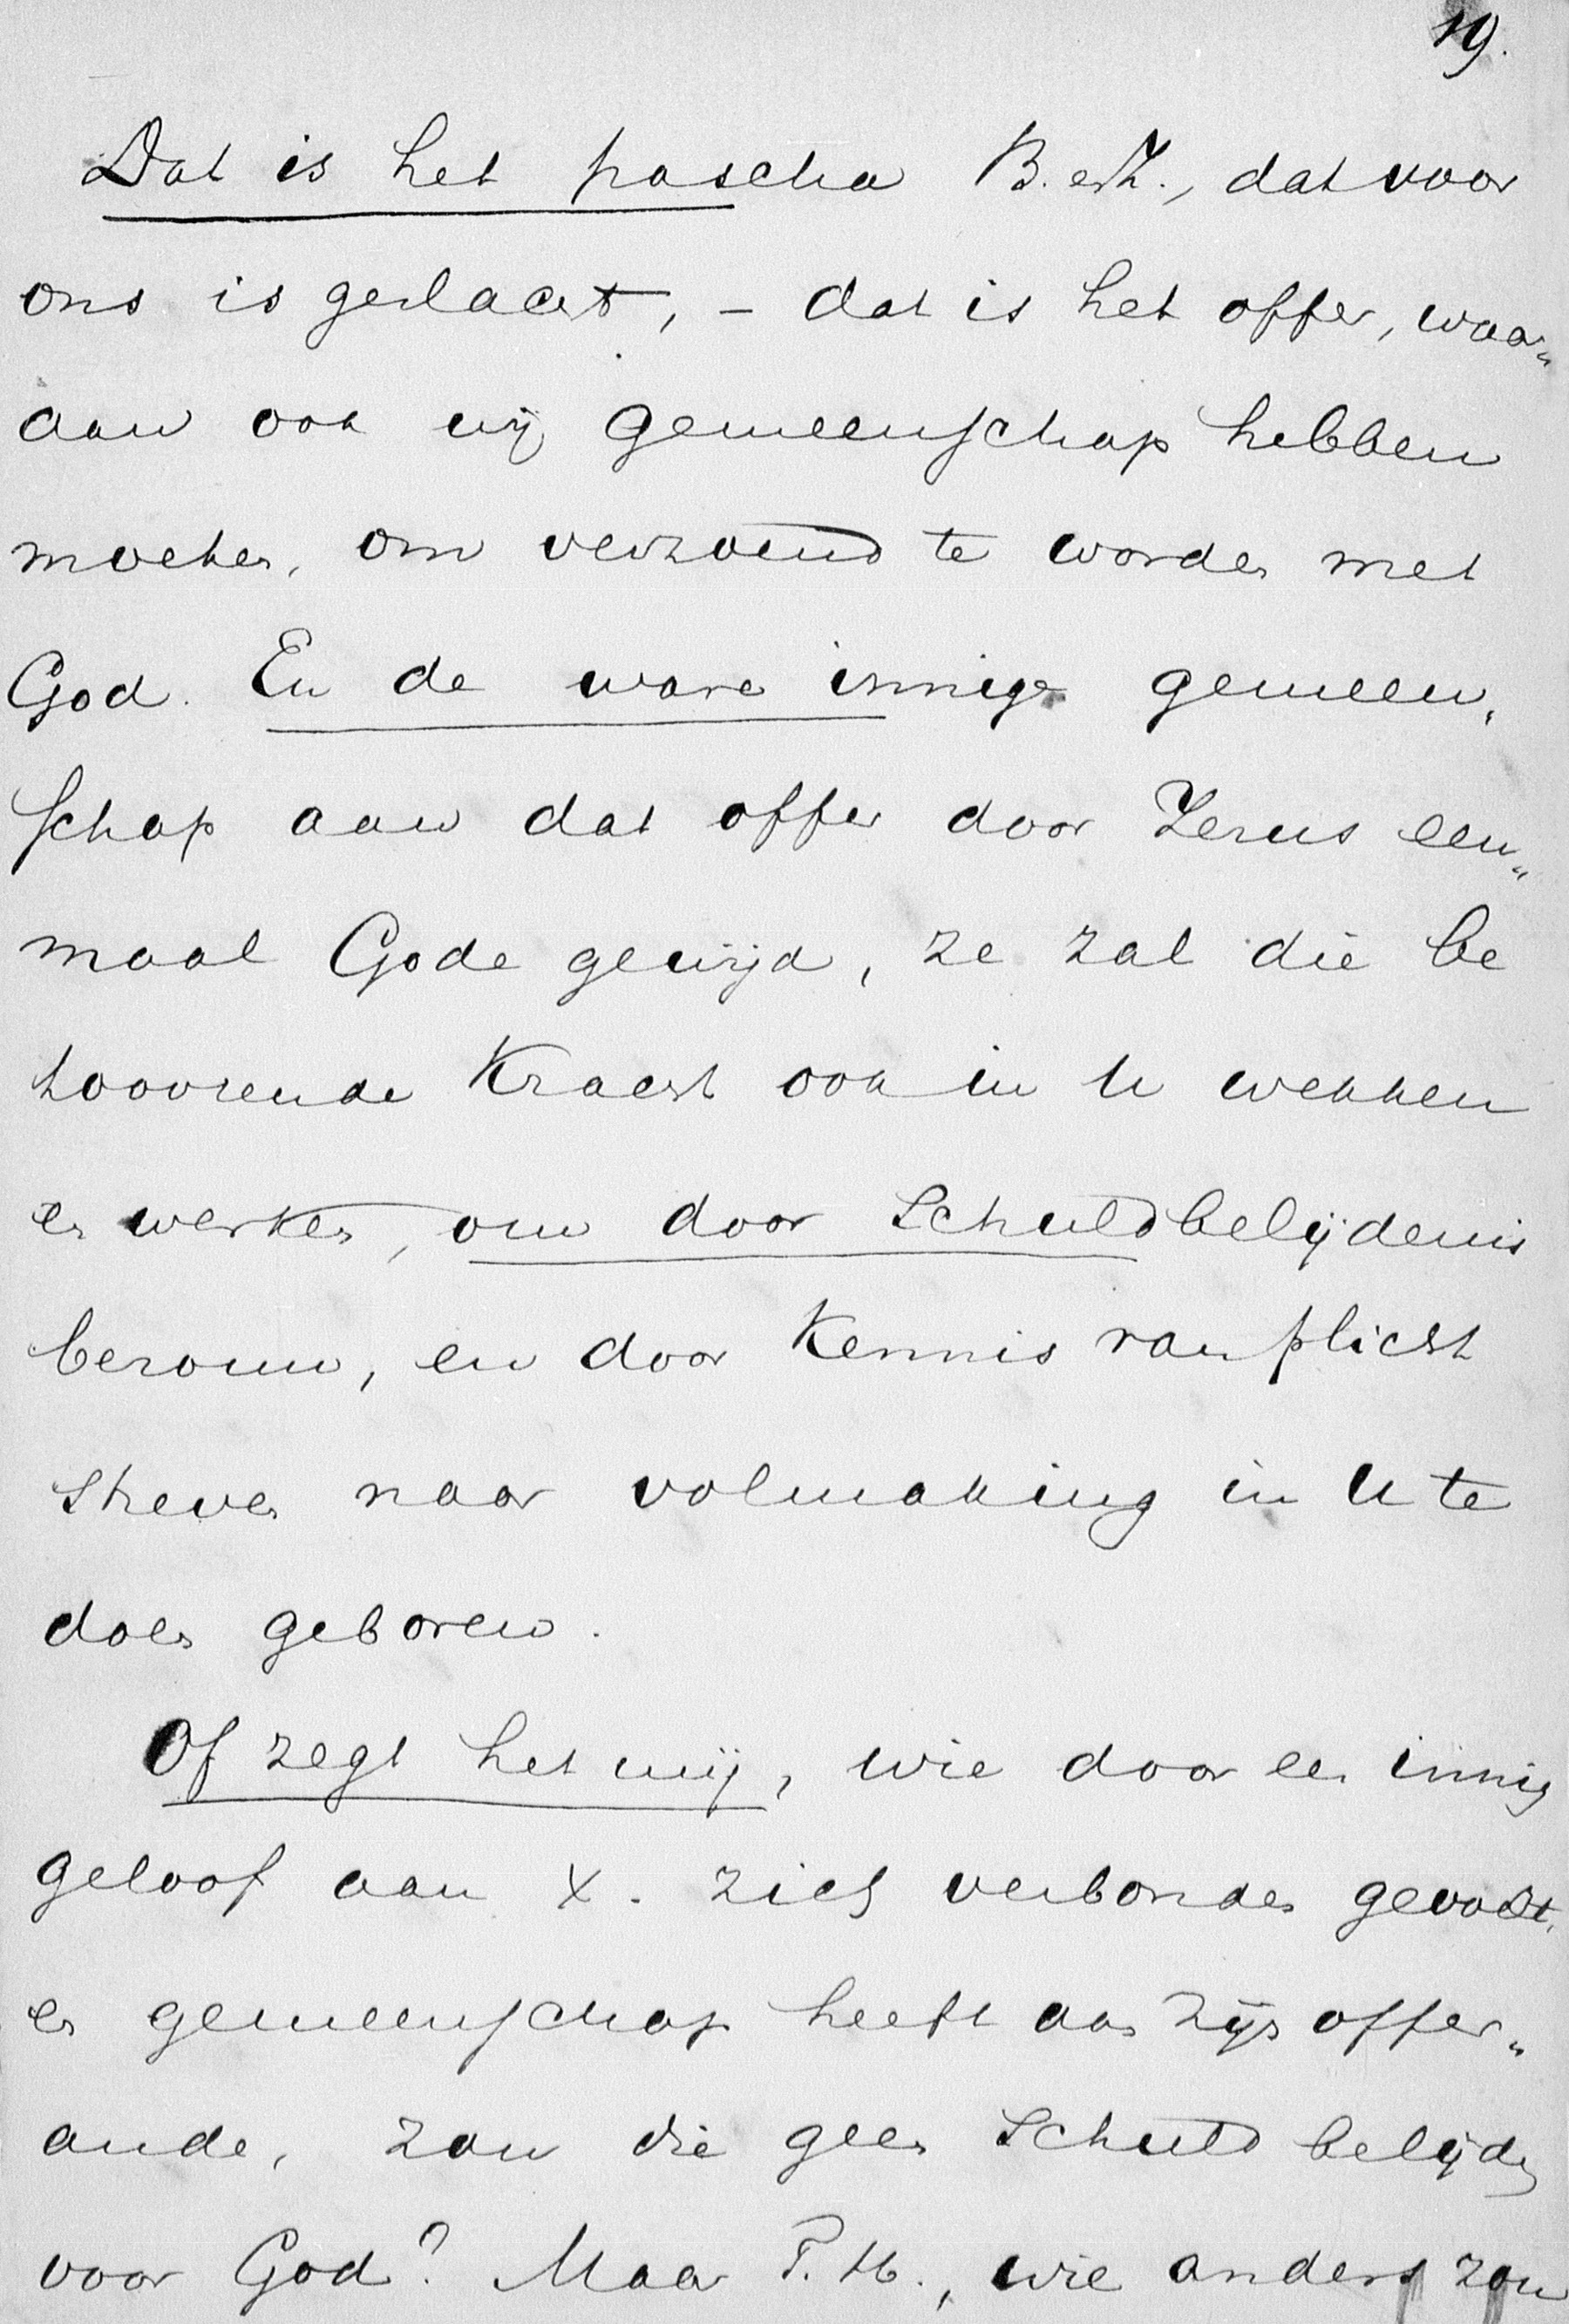 19.
Dat is het pascha B. en Z., dat voor
ons is geslacht, – dat is het offer, waar„
aan ook wij gemeenschap hebben
moeten, om verzoend te worden met
God. En de ware innige gemeen„
schap aan dat offer door Jezus een„
maal Gode gewijd, ze zal die be
hoorende Kracht ook in U wekken
en werken, om door Schuldbelijdenis
berouw, en door Kennis van plicht
streven naar volmaking in U te
doen geboren.
Of zegt het mij, wie door een innig
geloof aan X. zich verbonden gevoelt,
en gemeenschap heeft aan zijn offer„
ande, zou die geen Schuld belijden
voor God? Maar T. H., wie anders zou